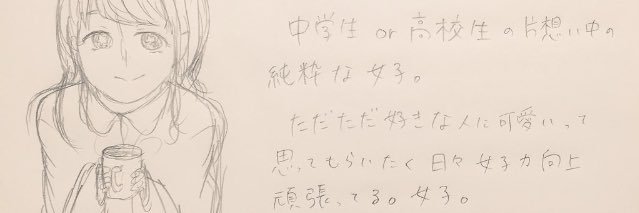 中学生 or 高校生の片想い中の
純粋な女子。
ただただ好きな人に可愛いって
思ってもらいたく日々女子力向上
頑張ってる。女子。